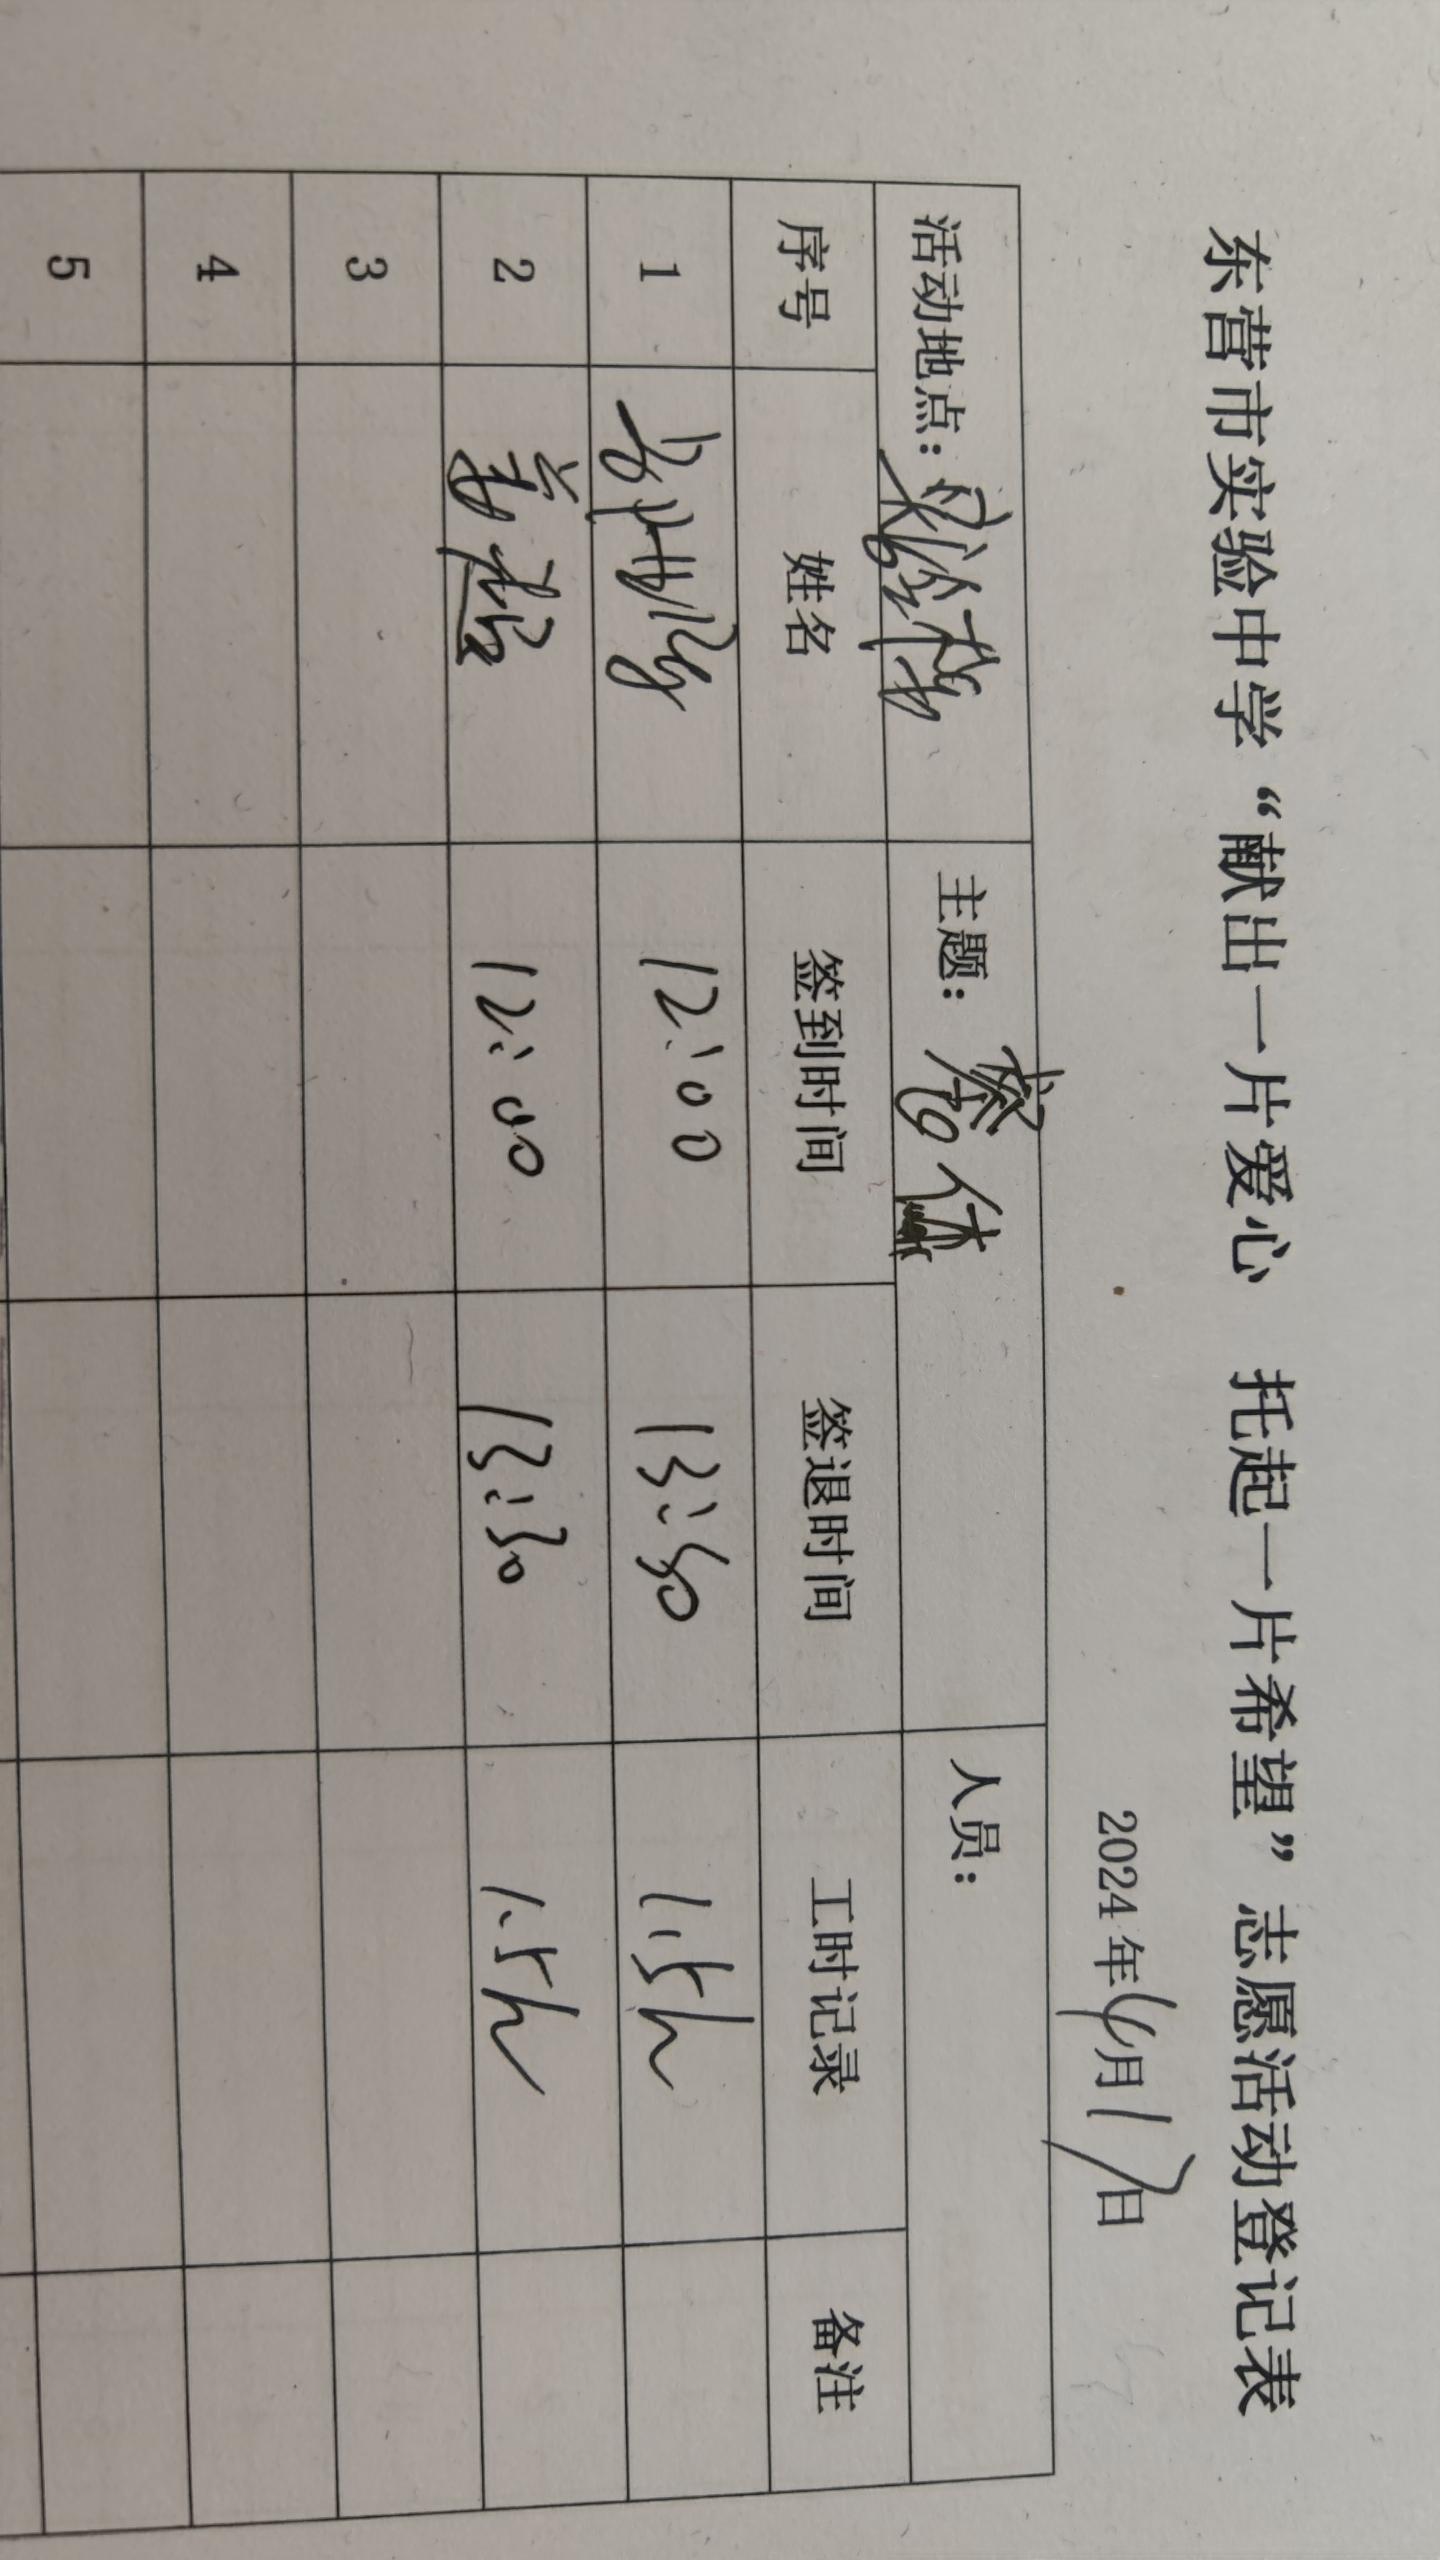 东营市实验中学“献出一片爱心 托起一片希望”志愿活动登记表
2024年4月17日
活动地点： 主题：整体 人员：
序号 姓名 签到时间 签退时间 工时记录 备注
1 12:00 13:30 1.5h
2 12:00 13:30 1.5h
3
4
5